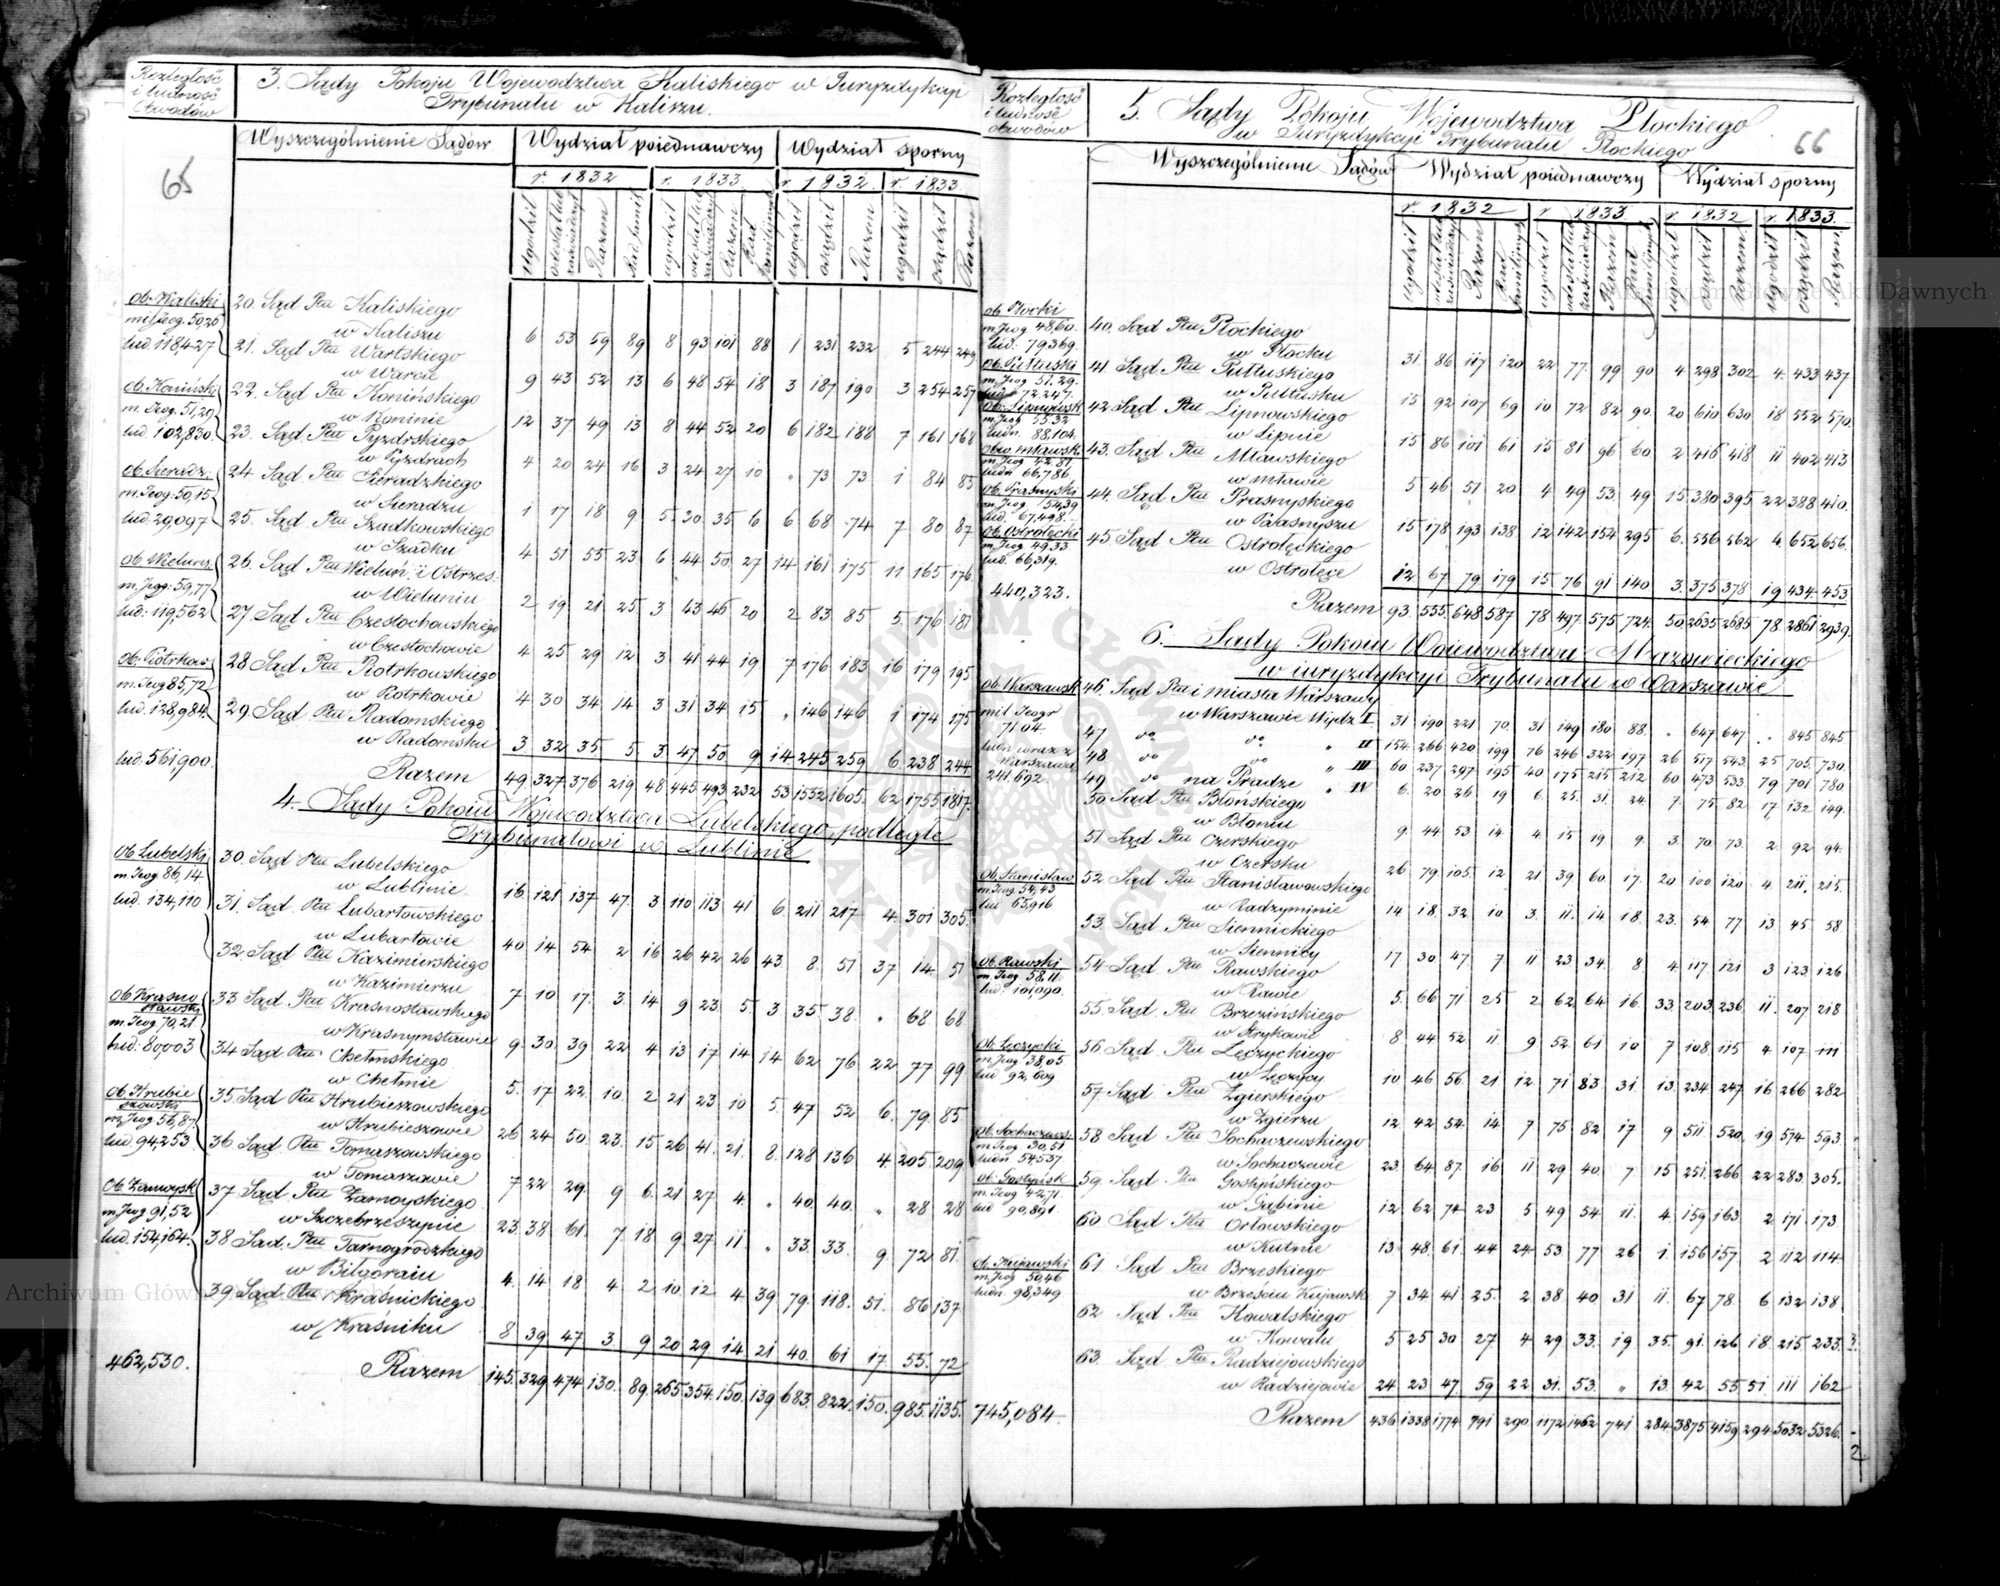 Rozległość
i ludność
Obwodów
3. Sądy Pokoju Województwa Kaliskiego w Juryzdykcyi
Trybunału w Kaliszu.
65
Wyszczególnienie Sądów
Wydział poiednawczy
Wydział sporny
r. 1832 r. 1833 r. 1832 r. 1833
ob. Kaliski
mil Jeog. 50,25
lud. 118,427
20. Sąd Ptu Kaliskiego
w Kaliszu 6 53 59 89 8 93 101 88 1 231 232 5 244 249
21. Sąd Ptu Wartskiego
w Warcie 9 43 52 13 6 48 54 18 3 187 190 3 254 257
ob. Koniński
m. Jeog. 51,20
lud. 102,830
22. Sąd Ptu Konińskiego
w Koninie 12 37 49 13 8 44 52 20 6 182 188 7 161 168
23. Sąd Ptu Pyzdrskiego
w Pyzdrach 4 20 24 16 3 24 27 10 " 73 73 1 84 85
ob. Sieradz.
m. Jeog. 50,15
lud. 29,097
24 Sąd Ptu Sieradzkiego
w Sieradzu 1 17 18 9 5 30 35 6 6 68 74 7 80 87
25. Sąd Ptu Szadkowskiego
w Szadku 4 51 55 23 6 44 50 27 14 161 175 11 165 176
ob. Wieluns.
m. Jeog. 59,77
lud. 119,562
26. Sąd Ptu Wieluń. i Ostrzes.
w Wieluniu 2 19 21 25 3 43 46 20 2 83 85 5 176 181
27. Sąd Ptu Częstochowskiego
w Częstochowie 4 25 29 12 3 41 44 19 7 176 183 16 179 195
ob. Piotrkow.
m. Jeog 85,72
lud. 128,984
28 Sąd Ptu Piotrkowskiego
w Piotrkowie 4 30 34 14 3 31 34 15 " 146 146 1 174 175
29. Sąd Ptu Radomskiego
w Radomsku 3 32 35 5 3 47 50 9 14 245 259 6 238 244
lud. 561900.
Razem 49 327 376 219 48 445 493 232 53 1552 1605 62 1755 1817
4. Sądy Pokoiu Województwa Lubelskiego, podległe
Trybunałowi w Lublinie
ob. Lubelski
m Jeog. 86,14
lud. 134,110
30. Sąd Ptu Lubelskiego
w Lublinie 16 121 137 47 3 110 113 41 6 211 217 4 301 305
31. Sąd Ptu Lubartowskiego
w Lubartowie 40 14 54 2 16 26 42 26 43 8 51 37 14 51
32. Sąd Ptu Kazimierskiego
w Kazimierzu 7 10 17 3 14 9 23 5 3 35 38 " 68 68
ob Krasno
stawski
m. Jeog. 70,21
lud. 80003
33 Sąd Ptu Krasnostawskiego
w Krasnymstawie 9 30 39 22 4 13 17 14 14 62 76 22 77 99
34 Sąd Ptu Chełmskiego
w Chełmie 5 17 22 10 2 21 23 10 5 47 52 6 79 85
ob. Hrubie
szowski
m. Jeog 56,87
lud. 94253
35. Sąd Ptu Hrubieszowskiego
w Hrubieszowie 26 24 50 23 15 26 41 21 8 128 136 4 205 209
36 Sąd Ptu Tomaszowskiego
w Tomaszowie 7 22 29 9 6 21 27 4 " 40 40 " 28 28
ob. Zamoysk
m. Jeog 91,52
lud. 154,164.
37 Sąd Ptu Zamoyskiego
w Szczebrzeszynie 23 38 61 7 18 9 27 11 " 33 33 9 72 81
38 Sąd Ptu Tarnogrodzkiego
w Biłgoraiu 4 14 18 4 2 10 12 4 39 79 118 51 86 137
39 Sąd Ptu Kraśnickiego
w Kraśniku 8 39 47 3 9 20 29 14 21 40 61 17 55 72
462,530.
Razem 145 329 474 130 89 265 354 150 139 683 822 150 985 1135
Rozległość
i ludność
obwodów
5. Sądy Pokoju Województwa Płockiego
w Juryzdykcyi Trybunału Płockiego
66
Wyszczególnienie Sądów
Wydział poiednawczy
Wydział sporny
r. 1832 r. 1833 r. 1832 r. 1833.
ob. Płocki
m. Jeog 48,60.
lud. 79369
40. Sąd Ptu Płockiego
w Płocku 31 86 117 120 22 77 99 90 4 298 302 4 433 437
ob. Pułtuski
m. Jeog. 51.29.
lud 72.247.
41 Sąd Ptu Pułtuskiego
w Pułtusku 15 92 107 69 10 72 82 90 20 610 630 18 552 570
ob. Lipnowsk
m. Jeog 75.32
ludn. 88,104
42 Sąd Ptu Lipnowskiego
w Lipnie 15 86 101 61 15 81 96 60 2 416 418 11 402 413
obw. mławsk.
m. Jeog 42.81
ludn 66,786
43. Sąd Ptu Mławskiego
w Mławie 5 46 51 20 4 49 53 49 15 380 395 22 388 410
ob. Prasnyski
m. Jeog. 154,39
lud. 67,498.
44. Sąd Ptu Prasnyskiego
w Prasnyszu 15 178 193 138 12 142 154 295 6 556 562 4 652 656
ob Ostrołęcki
m. Jeog 49.33
lud. 66,319.
45 Sąd Ptu Ostrołęckiego
w Ostrołęce 12 67 79 179 15 76 91 140 3 375 378 19 434 453
440,323.
Razem 93 555 648 587 78 497 575 724 50 2635 2685 78 2861 2939
6. Sądy Pokoiu Województwa Mazowieckiego
w iuryzdykcyi Trybunału w Warszawie
ob. Warszawsk
mil Jeogr
71,04
ludn wraz z
Warszawą
241,692
46. Sąd Ptu i miasta Warszawy
w Warszawie Wydz I 31 190 221 70 31 149 180 88 " 647 647 " 845 845
47 do do " II 154 266 420 199 76 246 322 197 26 517 543 25 705 730
48 do do " III 60 237 297 195 40 175 215 212 60 473 533 79 701 780
49 do na Pradze " IV 6 20 26 19 6 25 31 24 7 75 82 17 132 149
50 Sąd Ptu Błońskiego
w Błoniu 9 44 53 14 4 15 19 9 3 70 73 2 92 94
51 Sąd Ptu Czerskiego
w Czersku 26 79 105 12 21 39 60 17 20 100 120 4 211 215
ob. Stanisław
m. Jeog 54,43
lud 65,916
52. Sąd Ptu Stanisławowskiego
w Radzyminie 14 18 32 10 3 11 14 18 23 54 77 13 45 58
53. Sąd Ptu Siennickiego
w Siennicy 17 30 47 7 11 23 34 8 4 117 121 3 123 126
ob. Rawski
m. Jeog 58.11
lud. 101,090.
54 Sąd Ptu Rawskiego
w Rawie 5 66 71 25 2 62 64 16 33 203 236 11 207 218
55. Sąd Ptu Brzezińskiego
w Strykowie 8 44 52 11 9 52 61 10 7 108 115 4 107 111
ob Łęczycki
m. Jeog 38,05
lud 92,609
56 Sąd Ptu Łęczyckiego
w Łęczycy 10 46 56 21 12 71 83 31 13 234 247 16 266 282
57 Sąd Ptu Zgierskiego
w Zgierzu 12 42 54 14 7 75 82 17 9 511 520 19 574 593
ob. Sochaczews
m. Jeog 30,51
ludn 54537
58 Sąd Ptu Sochaczewskiego
w Sochaczewie 23 64 87 16 11 29 40 7 15 251 266 22 283 305
ob. Gostyńsk
m. Jeog 42,71.
lud 90,891
59. Sąd Ptu Gostyńskiego
w Gąbinie 12 62 74 23 5 49 54 11 4 159 163 2 171 173
60. Sąd Ptu Orłowskiego
w Kutnie 13 48 61 44 24 53 77 26 1 156 157 2 112 114
ob. Kujawski
m. Jeog 50,46
ludn. 98,349
61 Sąd Ptu Brzeskiego
w Brześciu Kujawsk 7 34 41 25 2 38 40 31 11 67 78 6 132 138
62 Sąd Ptu Kowalskiego
w Kowalu 5 25 30 27 4 29 33 19 35 91 126 18 215 233
63. Sąd Ptu Radziejowskiego
w Radziejowie 24 23 47 59 22 31 53 " 13 42 55 51 111 162
745,084.
Razem 436 1338 1774 791 290 1172 1462 741 284 3875 4159 294 5032 5326
2.
Archiwum Główne Akt Dawnych